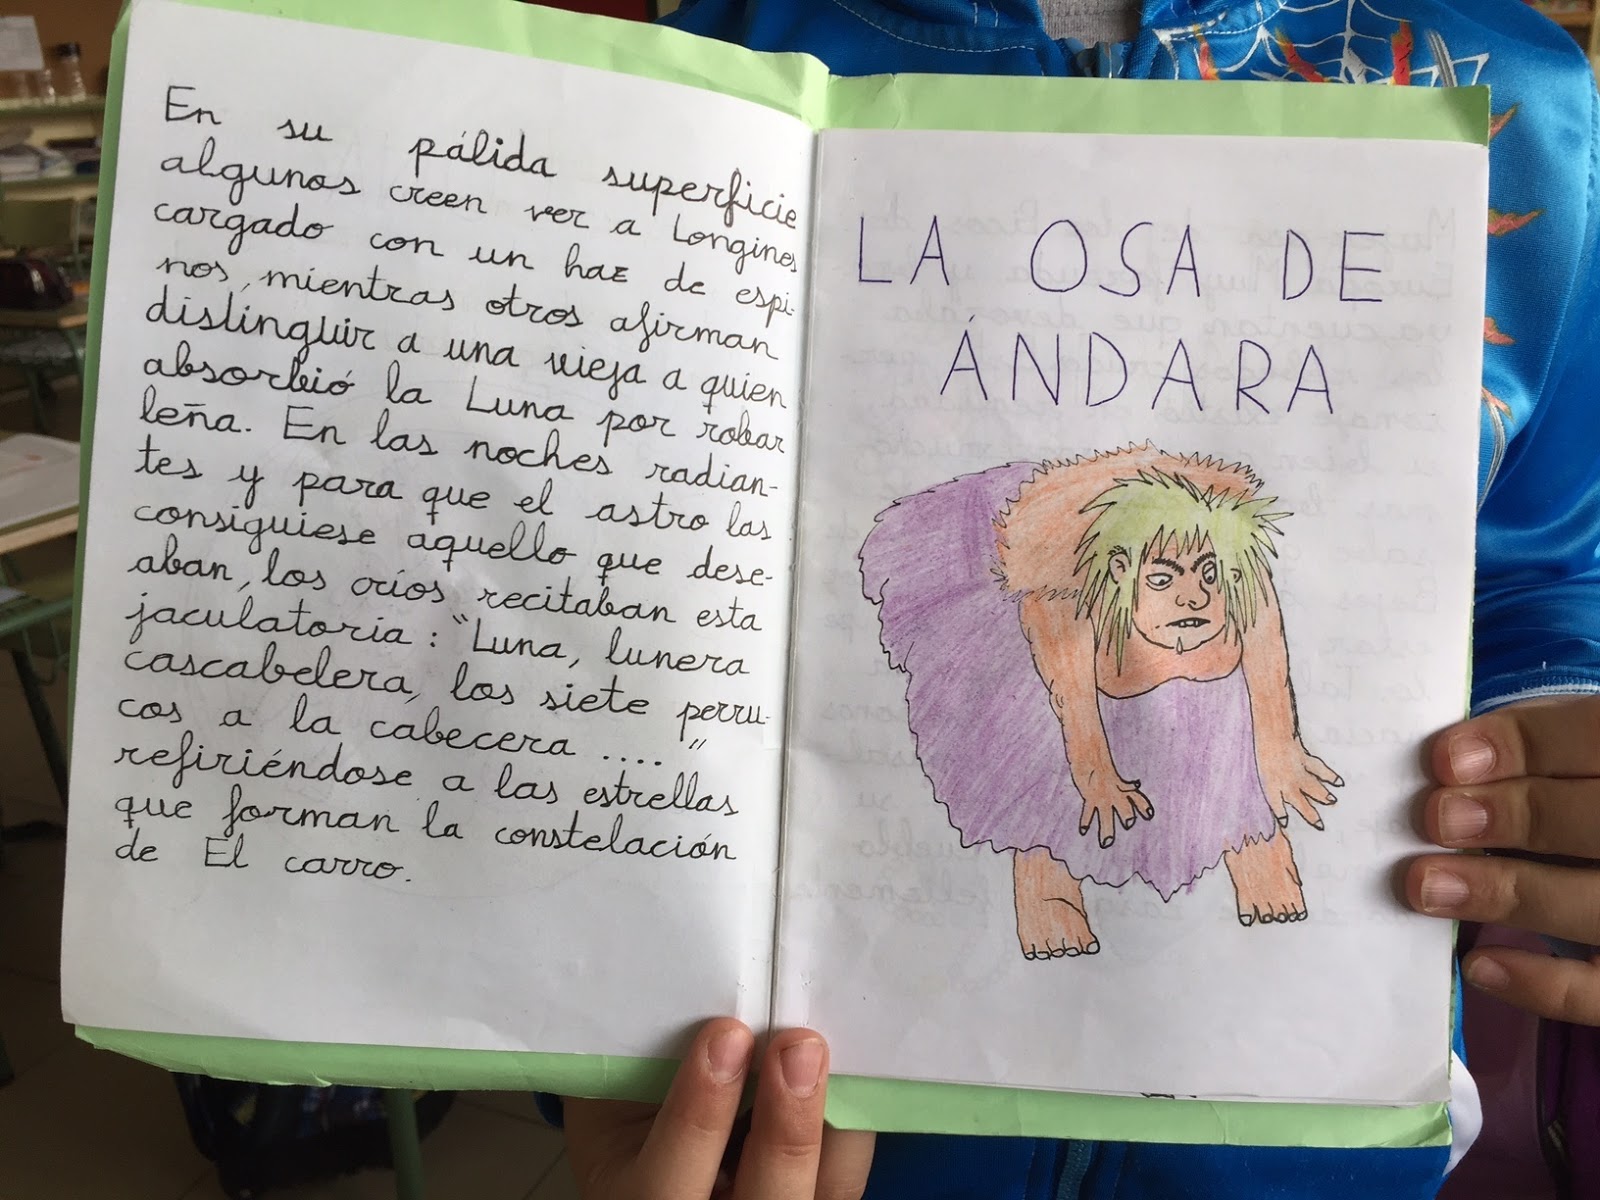 En su pálida superficie
algunos creen ver a Longinos
cargado con un haz de espi-
nos, mientras otros afirman
distinguir a una vieja a quien
absorbió la Luna por robar
leña. En las noches radian-
tes y para que el astro las
consiguiese aquello que dese-
aban, los críos recitaban esta
jaculatoria: "Luna, lunera
cascabelera, los siete perru-
cos a la cabecera ...."
refiriéndose a las estrellas
que forman la constelación
de El carro.
LA OSA DE
ÁNDARA